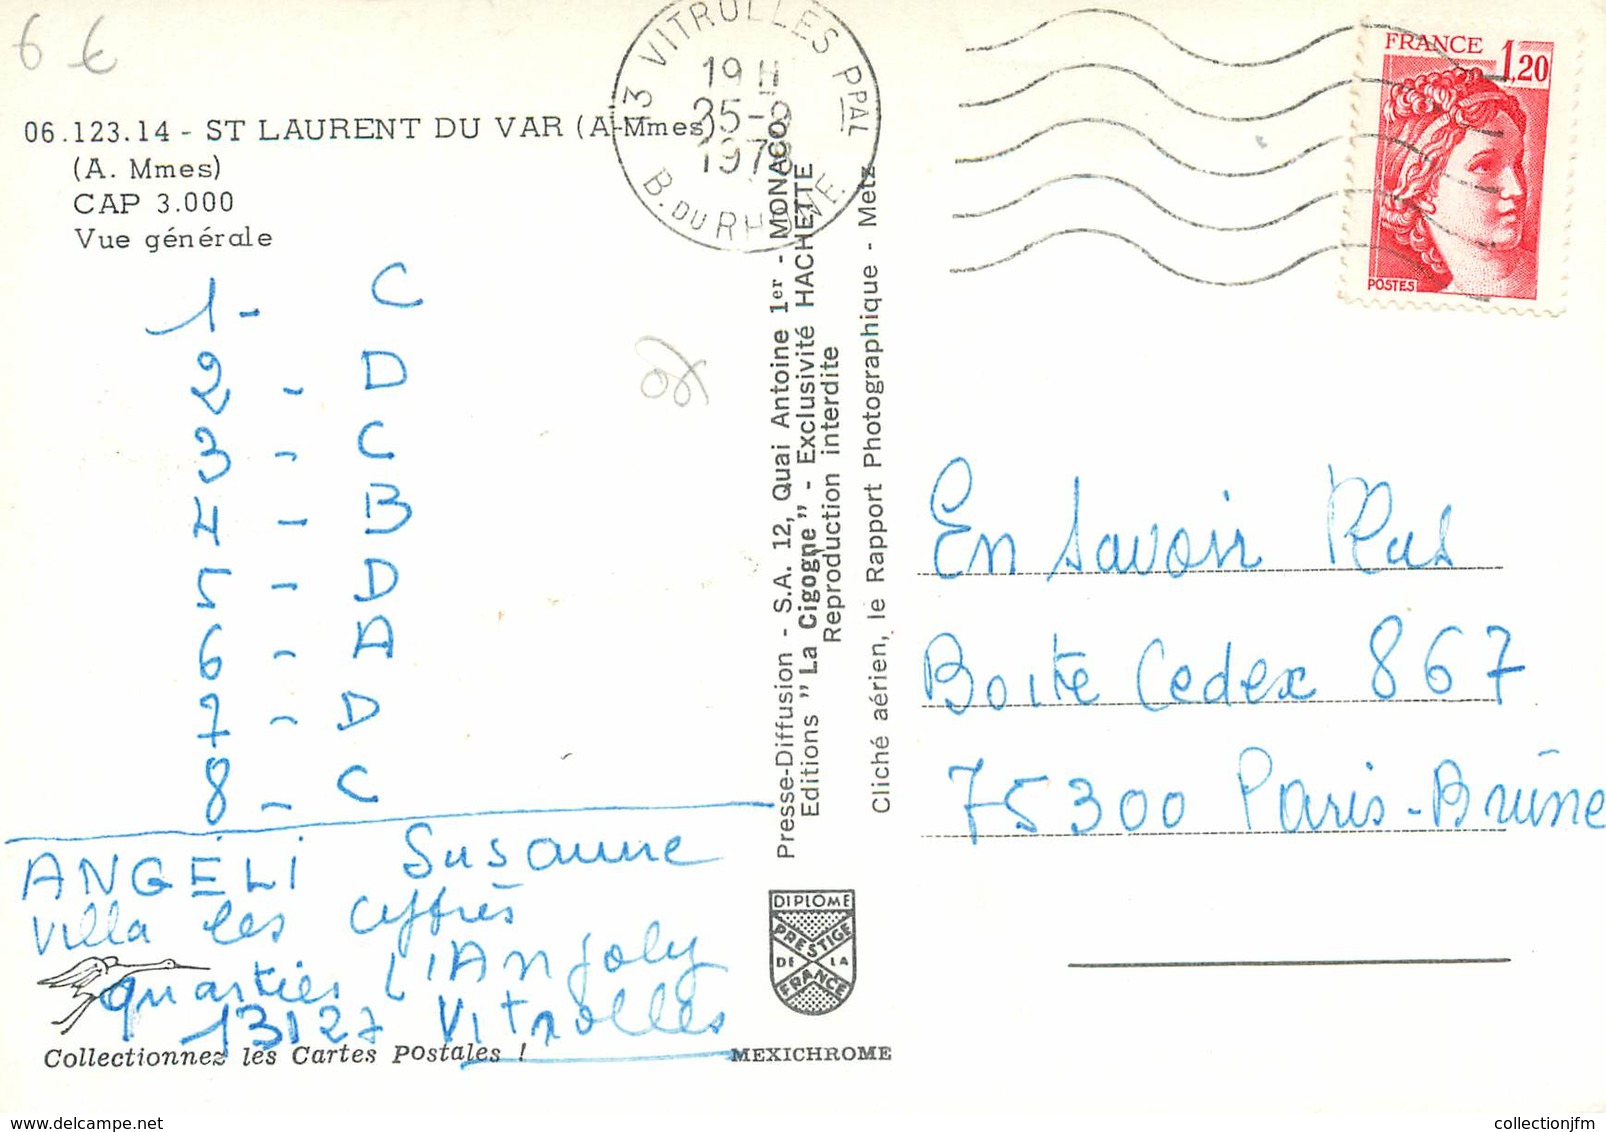 6 €
06.123.14 - ST LAURENT DU VAR (A-Mmes)
(A. Mmes)
CAP 3.000
Vue générale
1 - C
2 - D
3 - C
4 - B
5 - D
6 - A
7 - D
8 - C
ANGÉLI Susanne
Villa les
quartier l'Anjoly
13127 Vitrolles
Collectionnez les Cartes Postales !
13 VITROLLES PPAL
19 H
25-9
1978
B. DU RHONE
Presse-Diffusion - S.A. 12, Quai Antoine 1er - MONACO
Editions "La Cigogne" - Exclusivité HACHETTE
Reproduction interdite
Cliché aérien, le Rapport Photographique - Metz
DIPLOME
PRESTIGE
DE LA
FRANCE
MEXICHROME
FRANCE
1,20
POSTES
En Savoir Plus
Boite Cedex 867
75300 Paris-Brüne
collectionjfm
www.delcampe.net